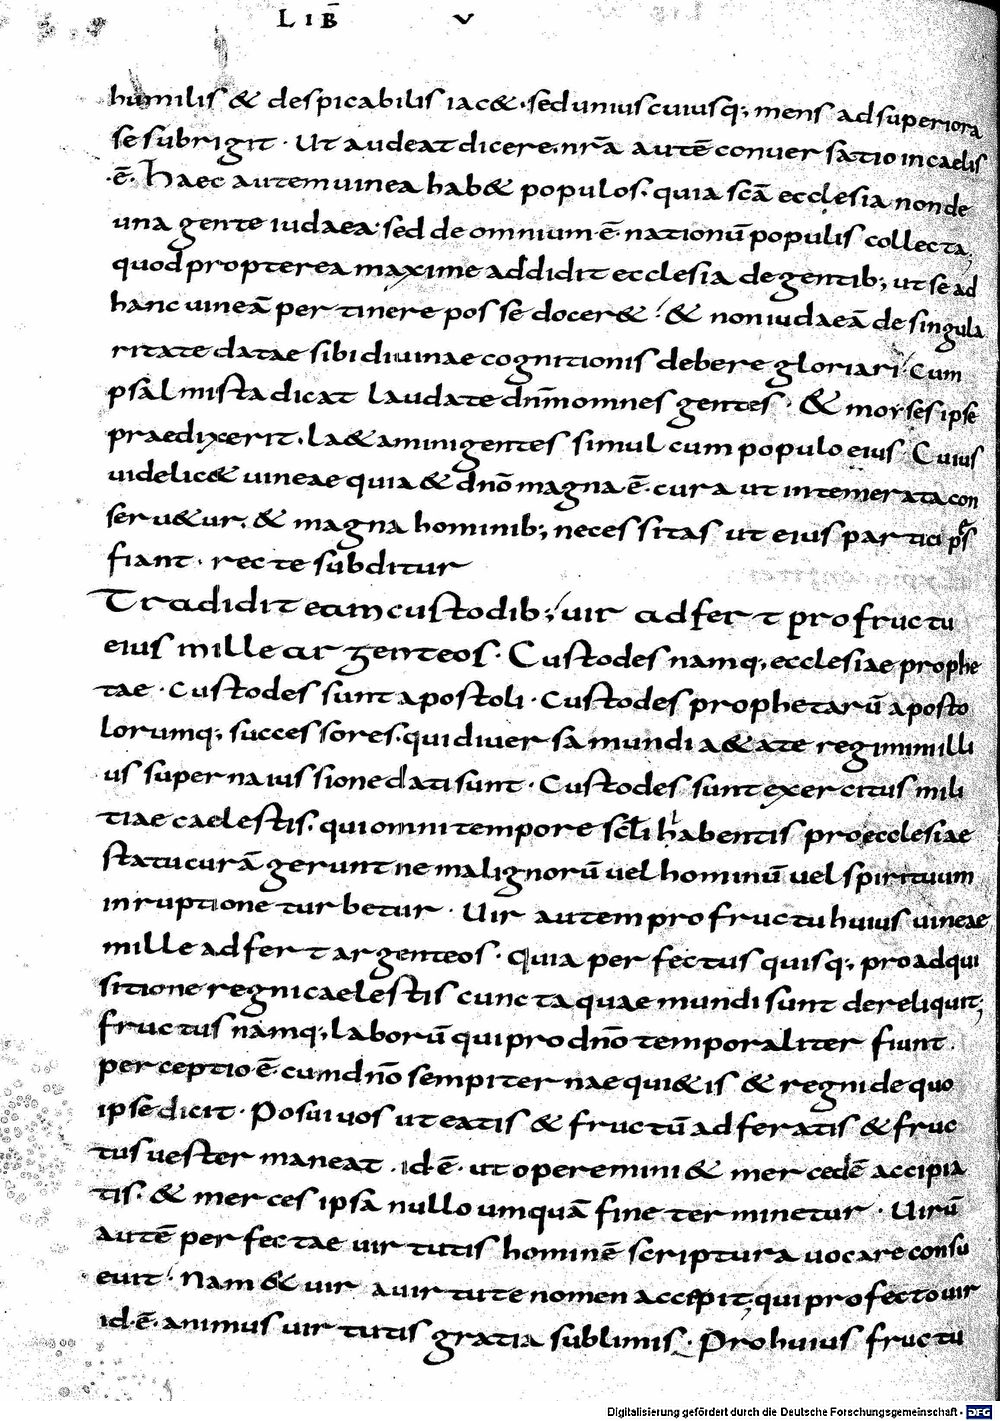 LIB̄ V
humilis & despicabilis iac&. sed uniuscuiusq; mens ad superiora
se subrigit. Ut audeat dicere. nr̄a autē conuersatio in caelis
.ē. Haec autem uinea hab& populos. quia sc̄a ecclesia non de
una gente iudaea. sed de omnium ē. nationū populis collecta;
quod propterea maxime addidit ecclesia de gentib; ut se ad
hanc uineā pertinere posse docer&. & non iudaeā de singula
ritate datae sibi diuinae cognitionis debere gloriari. Cum
psalmista dicat laudate dn̄m omnes gentes. & moyses ipse
praedixerit. la&amini gentes simul cum populo eius. Cuius
uidelic& uineae quia & dn̄o magna ē. cura ut intemerata con
seru&ur. & magna hominib; necessitas ut eius participes
fiant. recte subditur
Tradidit eam custodib; uir adfert pro fructu
eius mille argenteos. Custodes namq; ecclesiae prophe
tae. Custodes sunt apostoli. Custodes prophetarū aposto
lorumq; successores. qui diuersa mundi a&ate regimini illi
us superna iussione dati sunt. Custodes sunt exercitus mili
tiae caelestis. qui omni tempore scl̄i habentis pro ecclesiae
statu curā gerunt ne malignorū uel hominū uel spirituum
inruptione turbetur. Uir autem pro fructu huius uineae
mille adfert argenteos. Quia perfectus quisq; pro adqui
sitione regni caelestis cuncta quae mundi sunt dereliquit;
fructus namq; laborū qui pro dn̄o temporaliter fiunt.
perceptio ē. cum dn̄o sempiternae qui&is & regni de quo
ipse dicit. Posui uos ut eatis & fructū adferatis & fruc
tus uester maneat. id ē. ut operemini & mercedē accipia
tis. & merces ipsa nullo umquā fine terminetur. Uirū
autē perfectae uirtutis hominē scriptura uocare consu
euit. Nam & uir a uirtute nomen accepit, qui profecto uir
id ē. animus uirtutis gratia sublimis. Pro huius fructu
Digitalisierung gefördert durch die Deutsche Forschungsgemeinschaft - DFG